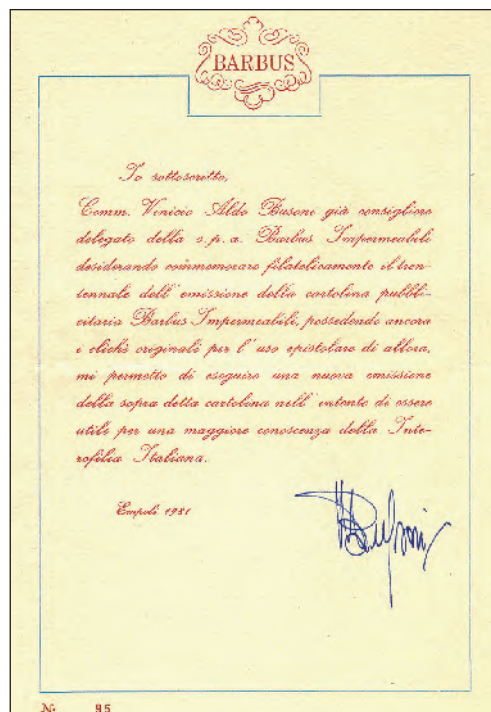 BARBUS
Io sottoscritto,
Comm. Vinicio Aldo Busoni già consigliere
delegato della s.p.a. Barbus Impermeabili
desiderando commemorare filatelicamente il tren-
tennale dell'emissione della cartolina pubbli-
citaria Barbus Impermeabili, possedendo ancora
i clichè originali per l'uso epistolare di allora,
mi permetto di eseguire una nuova emissione
della sopra detta cartolina nell'intento di essere
utile per una maggiore conoscenza della Inte-
rofilia Italiana.
Empoli 1981
N. 95